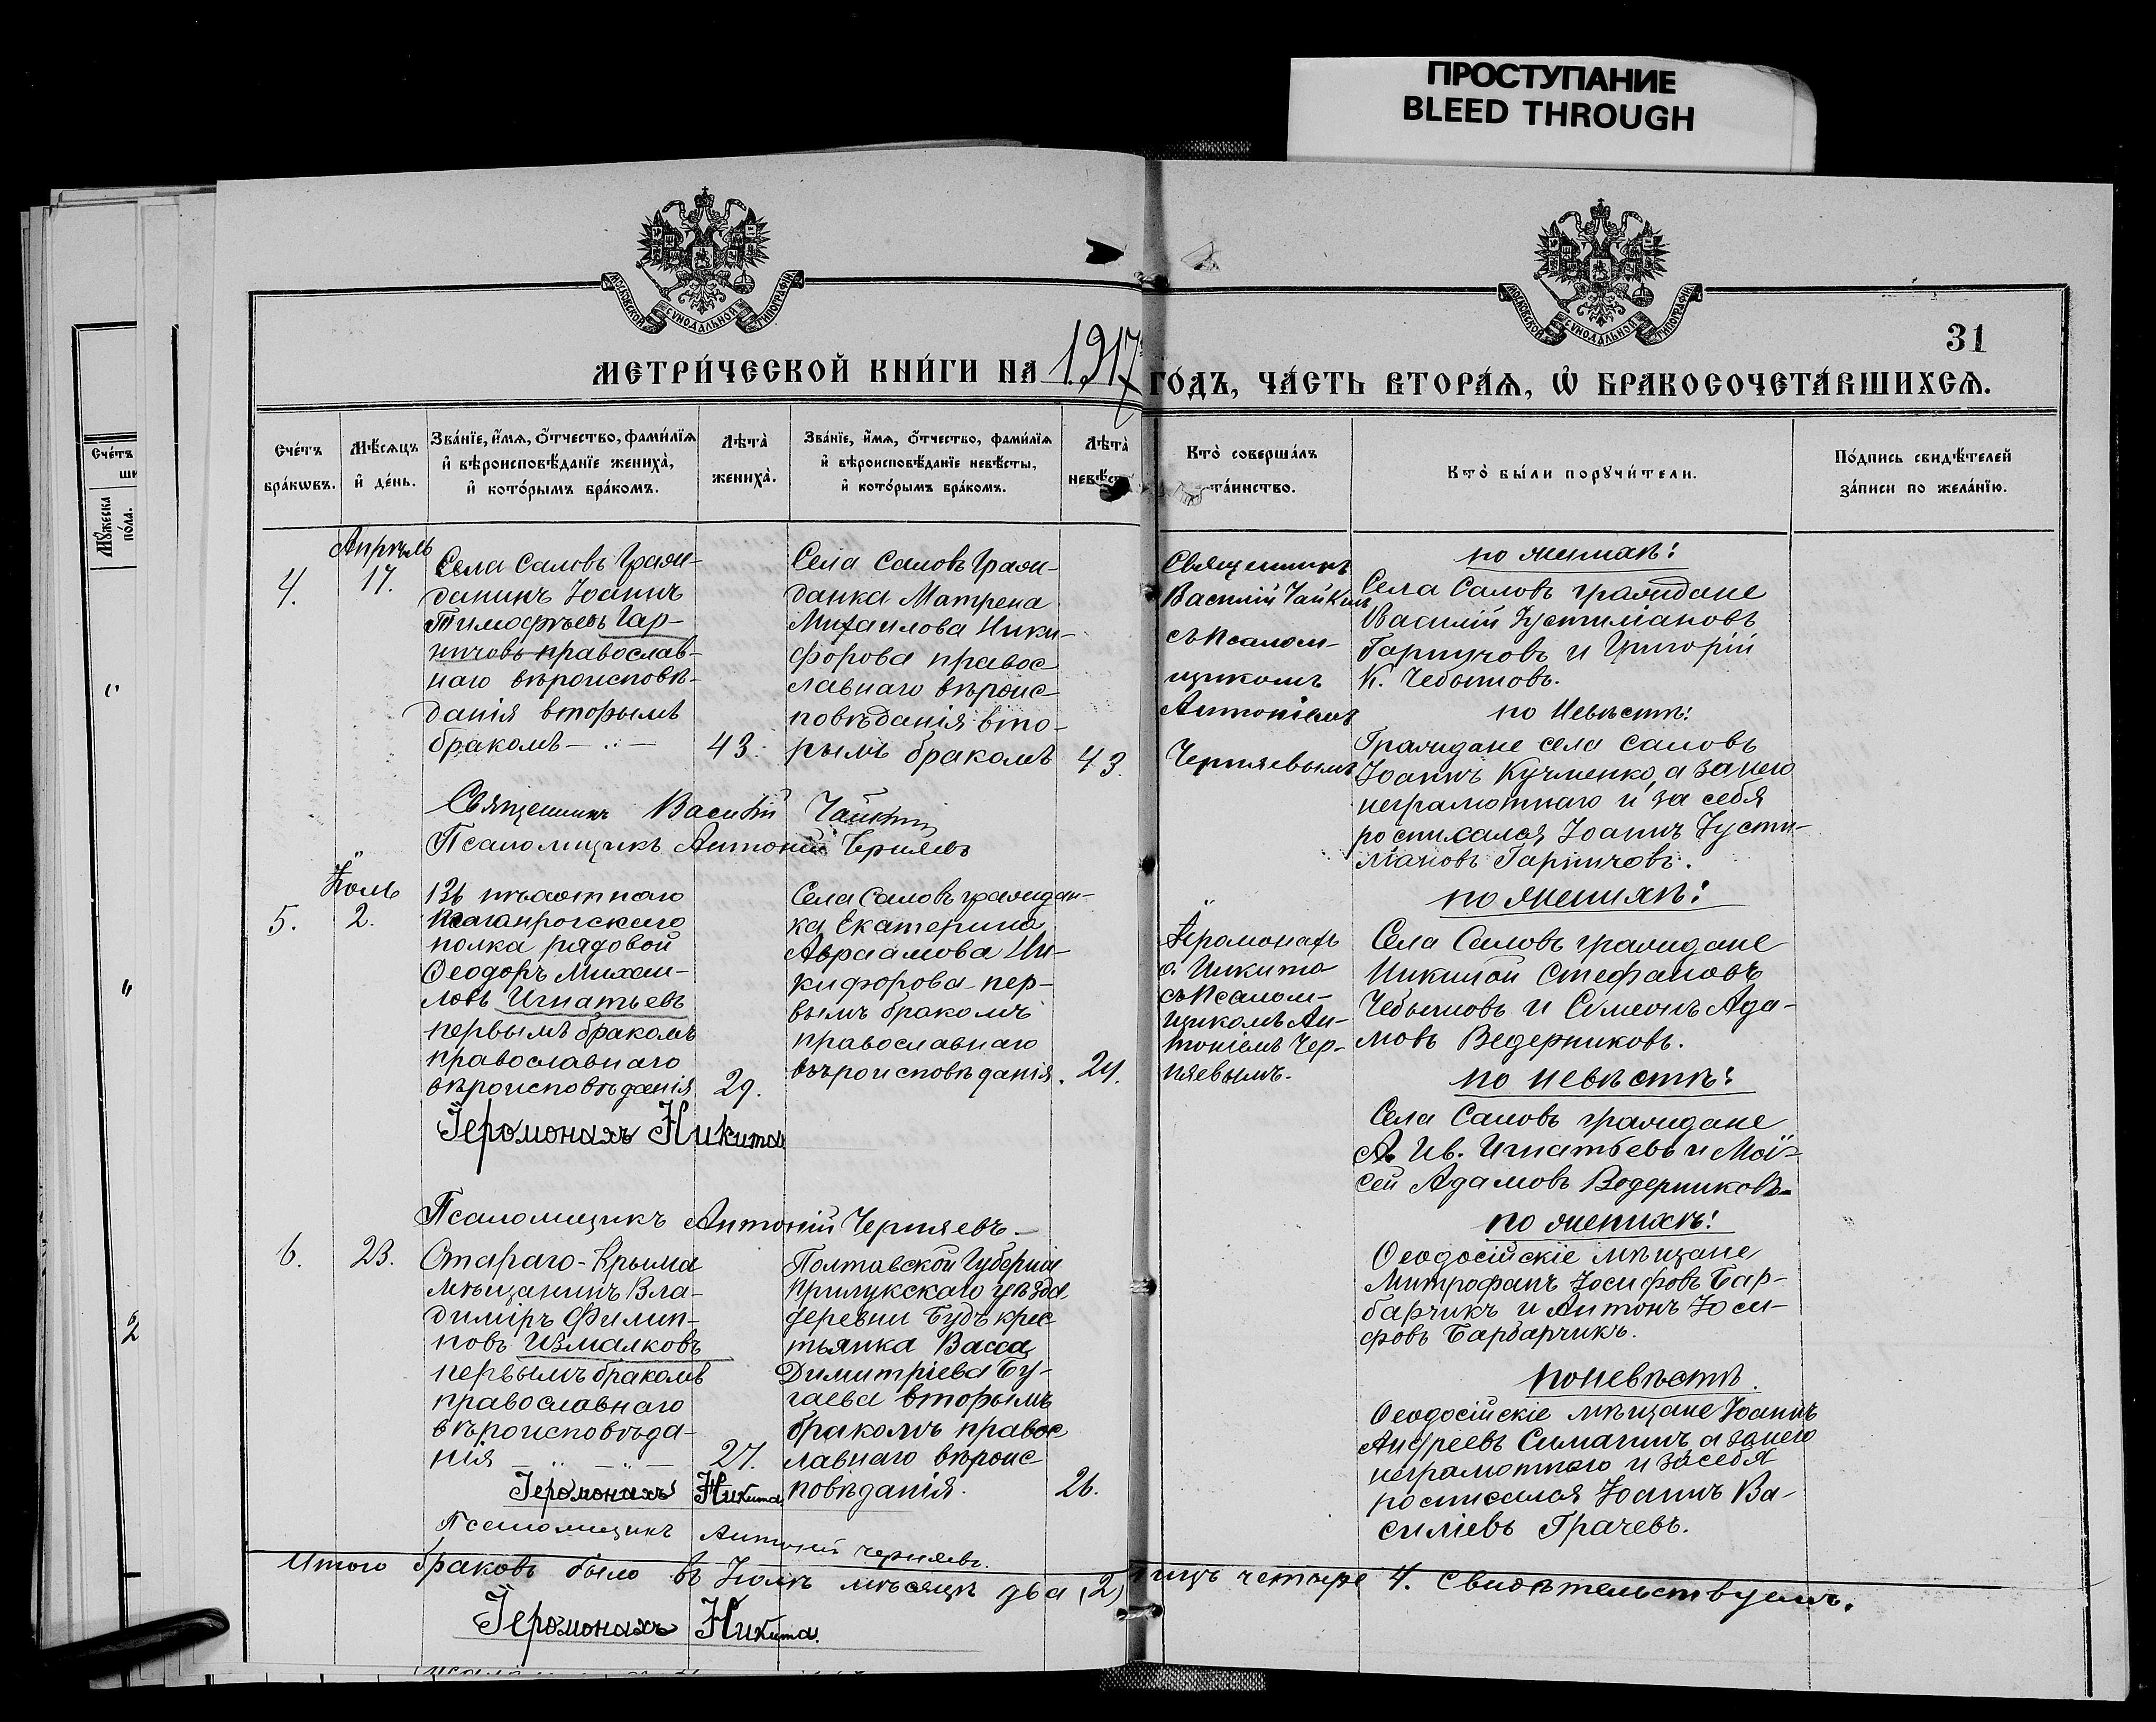 ПРОСТУПАНИЕ
BLEED THROUGH
МОСКОВСКОЙ СѴНОДАЛЬНОЙ ТИПОГРАФІИ
МОСКОВСКОЙ СѴНОДАЛЬНОЙ ТИПОГРАФІИ
31
МЕТРИ́ЧЕСКОЙ КНИ́ГИ НА 1917 ГО́ДЪ, ЧА́СТЬ ВТОРА́Ѧ, Ѽ БРАКОСОЧЕТА́ВШИХСѦ.
Сче́тъ
бра́кѡвъ.
Мѣ́сѧцъ
и҆ де́нь.
Зва́нїе, и҆́мѧ, ѻ҆́тчество, фами́лїѧ
и҆ вѣроисповѣ́данїе жениха̀,
и҆ кото́рымъ бра́комъ.
Лѣта̀
жениха̀.
Зва́нїе, и҆́мѧ, ѻ҆́тчество, фами́лїѧ
и҆ вѣроисповѣ́данїе невѣ́сты,
и҆ кото́рымъ бра́комъ.
Лѣта̀
невѣ́сты
Кто̀ соверша́лъ
та́инство.
Кто̀ бы́ли порꙋчи́тели.
По́дпись свидѣ́телей
за́писи по жела́нїю.
Сче́тъ
Мꙋ́жеска
по́ла.
4.
Апрѣль
17.
Села Саловъ Граж-
данинъ Іоаннъ
Тимофѣевъ Гар-
ничовъ православ-
наго вѣроисповѣ-
данія вторымъ
бракомъ — .. —
43.
Села Саловъ Граж-
данка Матрена
Михаилова Ники-
форова правос
лавнаго вѣроис-
повѣданія вто-
рымъ бракомъ
43.
Священникъ
Василій Чайкинъ
съ псалом-
щикомъ
Антоніемъ
Черняевымъ
по женихѣ:
Села Саловъ граждане
Василій Іустиніановъ
Гарничовъ и Григорій
К. Чебытовъ.
по Невѣстѣ:
Граждане села Саловъ
Іоаннъ Кучменко, а за него
неграмотнаго и за себя
росписался Іоаннъ Іусти-
ніановъ Гарничовъ.
Священникъ Василій Чайкинъ
Псаломщикъ Антоній Черняевъ
5.
Іюль
2.
136 пѣхотнаго
Таганрогскаго
полка рядовой
Ѳеодоръ Михаи-
ловъ Игнатьевъ
первымъ бракомъ
православнаго
вѣроисповѣданія
29.
Села Саловъ граждан-
ка Екатерина
Авраамова Ни-
кифорова пер-
вымъ бракомъ
православнаго
вѣроисповѣданія.
24.
Іеромонахъ
о. Никита
съ псалом-
щикомъ Ан-
тоніемъ Чер-
няевымъ.
по женихѣ:
Села Саловъ граждане
Никита Стефановъ
Чебытовъ и Симеонъ Ада-
мовъ Ведерниковъ.
по невѣстѣ:
Села Саловъ граждане
А. Ив. Игнатьевъ и Мои-
сей Адамовъ Ведерниковъ
Іеромонахъ Никита
Псаломщикъ Антоній Черняевъ
6.
23.
Стараго-Крыма
мѣщанинъ Вла-
диміръ Филип-
повъ Измалковъ
первымъ бракомъ
православнаго
вѣроисповѣда-
нія — .. — .. —
27.
Полтавской Губерніи
Прилукскаго уѣзда
деревни Будъ крес
тьянка Васса
Димитріева Бу-
гаева вторымъ
бракомъ правос
лавнаго вѣроис
повѣданія.
26.
по женихѣ:
Ѳеодосійскіе мѣщане
Митрофанъ Іосифовъ Бар-
барчикъ и Антонъ Іоси-
фовъ Барбарчикъ.
по невѣстѣ.
Ѳеодосійскіе мѣщане Іоаннъ
Андреевъ Симагинъ а за него
неграмотнаго и за себя
росписался Іоаннъ Ва-
силіевъ Грачевъ.
Іеромонахъ Никита
Псаломщикъ Антоній Черняевъ.
Итого браковъ было въ Іюлѣ мѣсяцѣ два (2) лицъ четыре 4. Свидѣтельствуемъ.
Іеромонахъ Никита.